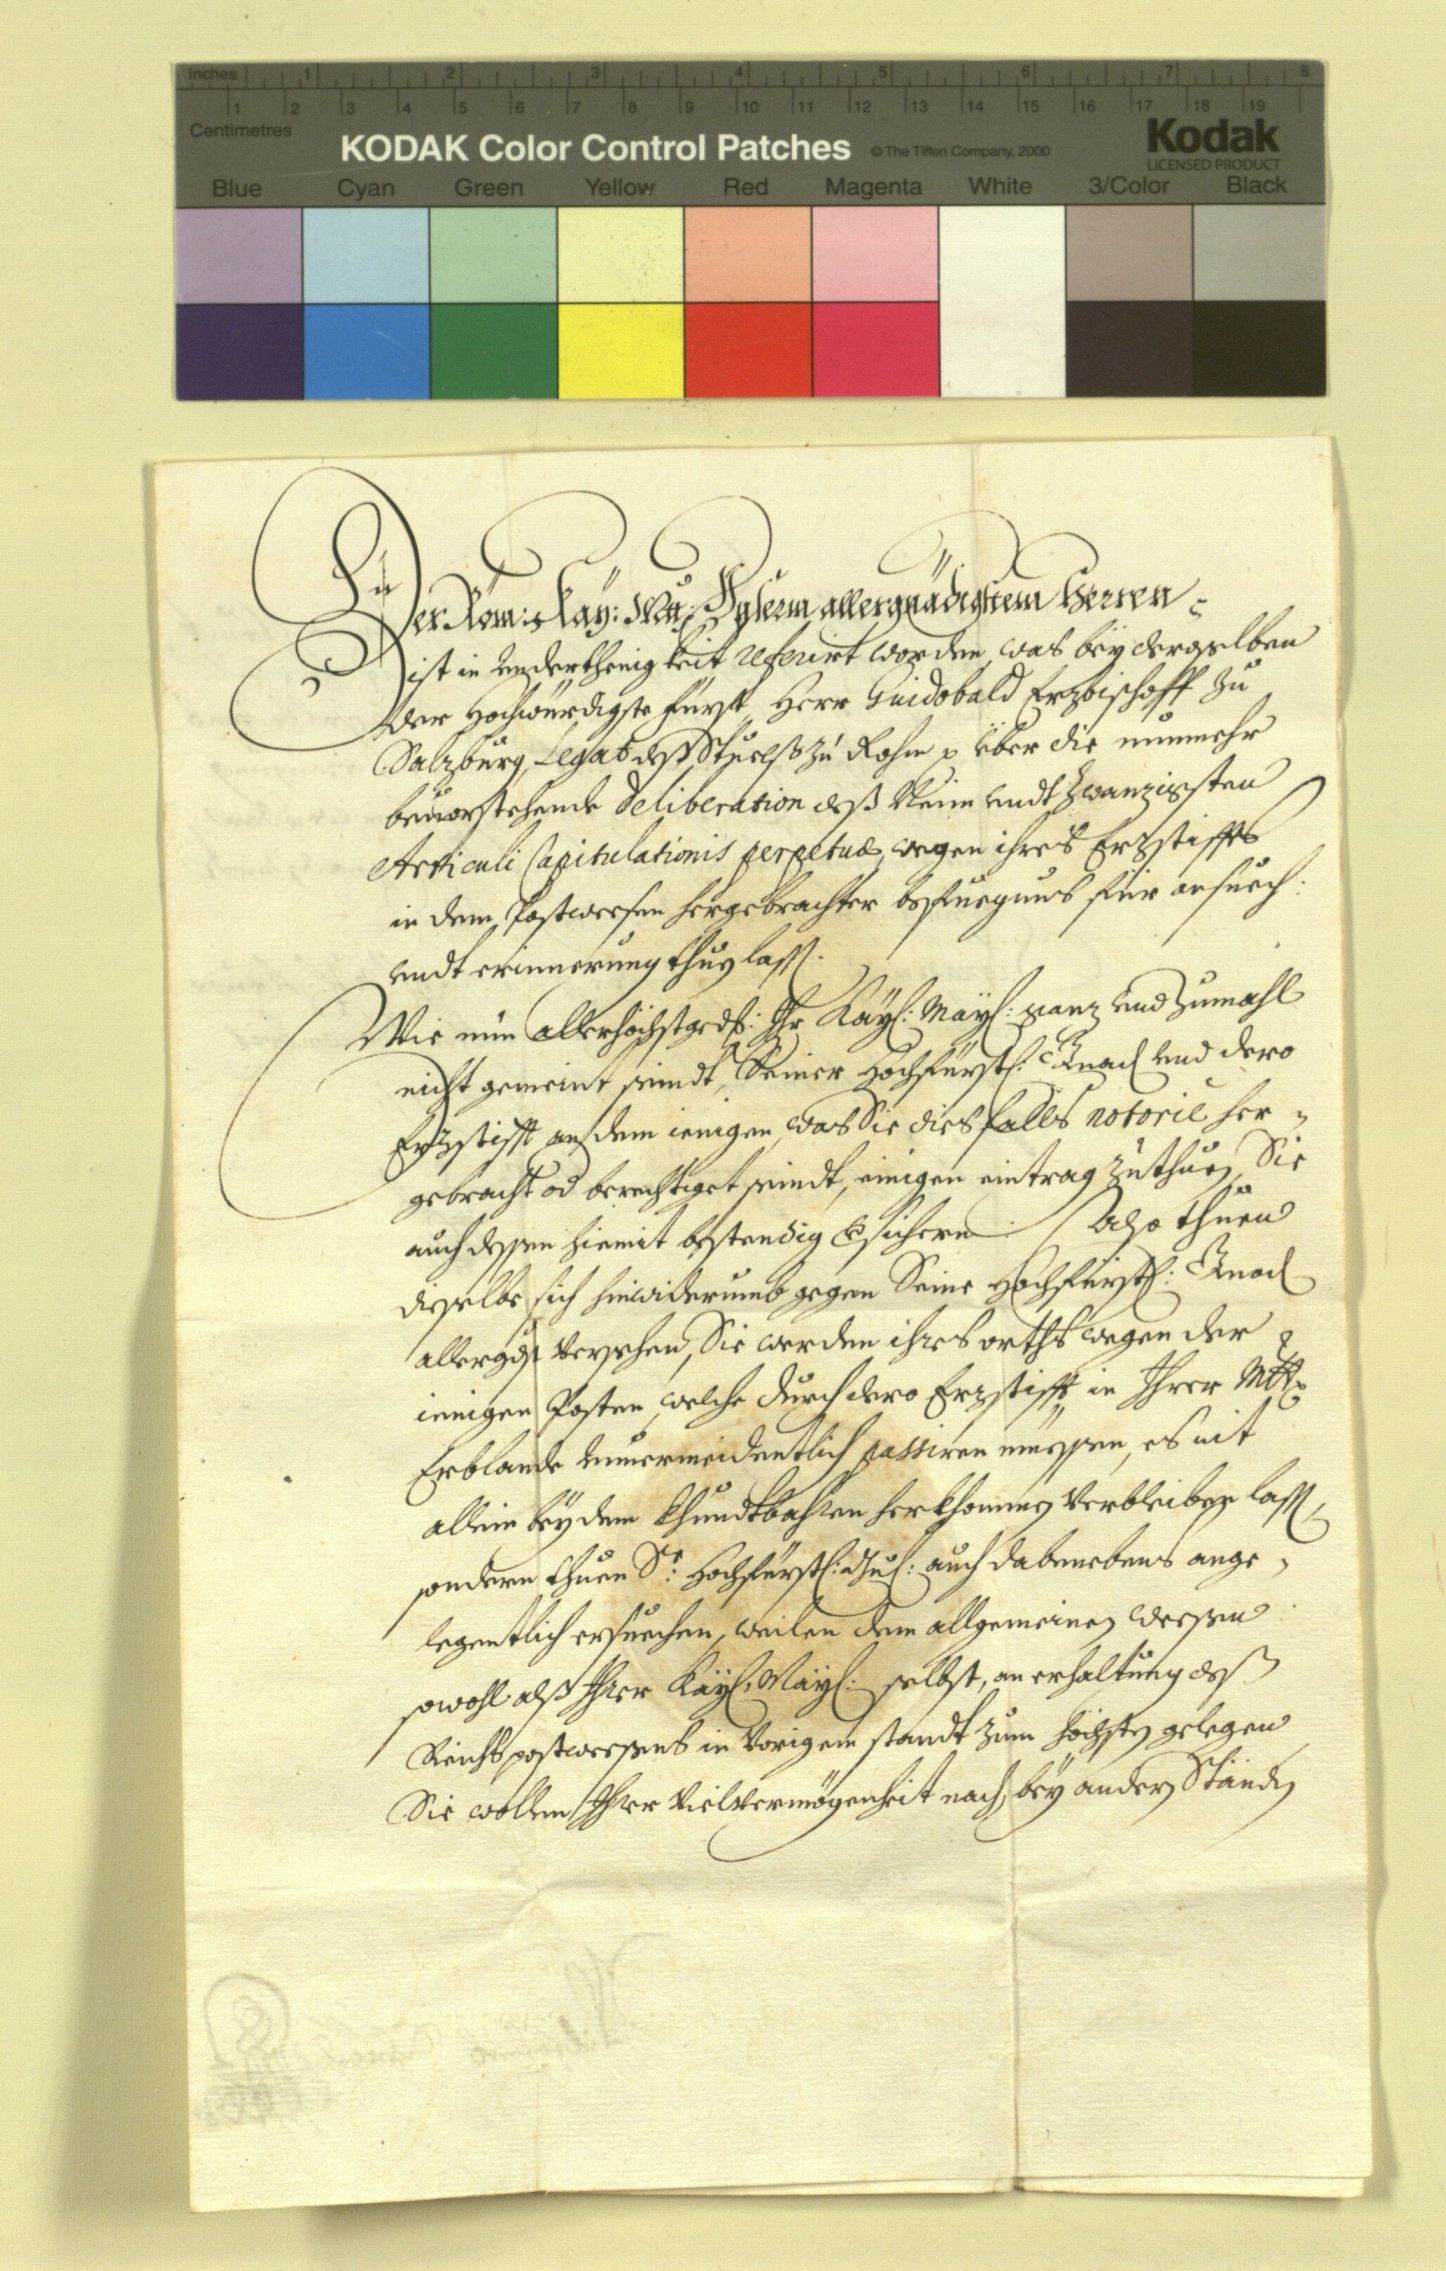 Inches 1 2 3 4 5 6 7 8
1 2 3 4 5 6 7 8 9 10 11 12 13 14 15 16 17 18 19
Centimetres
KODAK Color Control Patches © The Tiffen Company, 2000
Kodak
LICENSED PRODUCT
Blue Cyan Green Yellow Red Magenta White 3/Color Black
Der Röm: Kay: Mtt: Unserm allergnädigstem Herren
ist in underthenigkeit referirt worden, was bey deroselben
der Hochwürdigste Fürst, Herr Guidobald Erzbischoff zu
Salzburg, Legat deß Stuelß zu Rohm p über die nunmehr
beuorstehende Deliberation deß Neün undt Zwanzigsten
Articuli Capitulationis perpetuæ, wegen ihres Erzstiffts
in dem Postweesen hergebrachter befuegnus für ansuech:
undt erinnerung thuen lassen.
Wie nun allerhöchstged: Ihr Kayl: Mayl: ganz und zumahl
nicht gemeint seindt, Seiner Hochfürstl: Gnad und dero
Erzstifft an dem ienigen, was Sie diesfalls notoriè her-
gebracht od berechtiget seindt, einigen eintrag zuthuen, Sie
auch dessen hiemit bestendig versichern. Also thuen
dieselbe sich hinwiderumb gegen Seine Hochfürstl: Gnad
allergdst versehen, Sie werden ihres orths wegen der
ienigen Posten, welche durch dero Erzstifft in Ihrer Mtt
Erblande unuermeidentlich passiren müessen, es nit
allein bey dem khundtbahren herkhommen verbleiben lassen,
sondern thuen Sr: Hochfürstl: auch dabenebens ange-
legentlich ersuechen, weilen dem allgemeinen weesen
sowohl alß Ihrer Kayl: Mayl: selbst, an erhaltung deß
Reichspostweesens in vorigem standt zum höchsten gelegen
Sie wollen Ihrer vielvermögenheit nach, bey andern Ständen